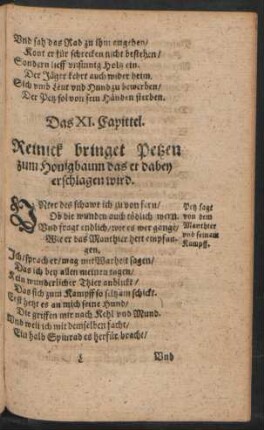 Vnd sah das Rad zu ihm angehen/
Kont er für schrecken nicht bestehen/
Sondern lieff vnsinnig Holtz ein.
Der Jäger kehrt auch wider heim.
Sich vmb Leut vnd Hund zu bewerben/
Der Petz sol von sein Händen sterben.
Das XI. Capittel.
Reinick bringet Petzen
zum Honigbaum das er dabey
erschlagen wird.
Nter des schawt ich zu von fern/
Ob die wunden auch tödlich wern.
Vnd fragt endlich/ wie es wer gangē/
Wie er das Manthier hett empfan-
gen,
Petz sagt
von dem
Manthier
vnd seinem
Kampff.
Ich sprach er/ mag mit Warheit sagen/
Das ich bey allen meinen tagen,
Kein wunderlicher Thier anblickt/
Das sich zum Kampff so seltzam schickt.
Erst hetzt es an mich seine Hund/
Die griffen mir nach Kehl vnd Mund.
Vnd weil ich mit demselben facht/
Ein hald Spinrad es herfür bracht/
Vnd